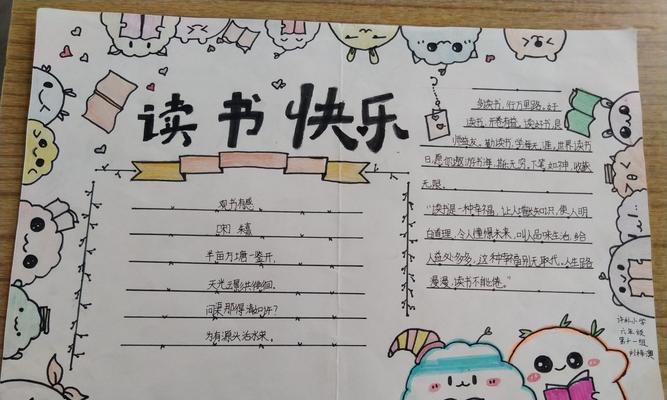 读书快乐
观书有感
[宋] 朱熹
半亩方塘一鉴开,
天光云影共徘徊。
问渠那得清如许?
为有源头活水来。
多读书, 行万里路, 好
读书, 开卷有益, 读好书, 良
师益友, 勤读书, 学海无涯, 世界读书
日, 愿你遨游书海, 其乐无穷, 下笔如神, 收获
无限。
"读书是一种幸福, 让人增长知识, 使人明
白道理, 令人憧憬未来, 叫人品味生活, 给
人益处多多, 这种幸福别无取代, 人生路
漫漫, 读书不能倦。"
小学
六年级
第十一组